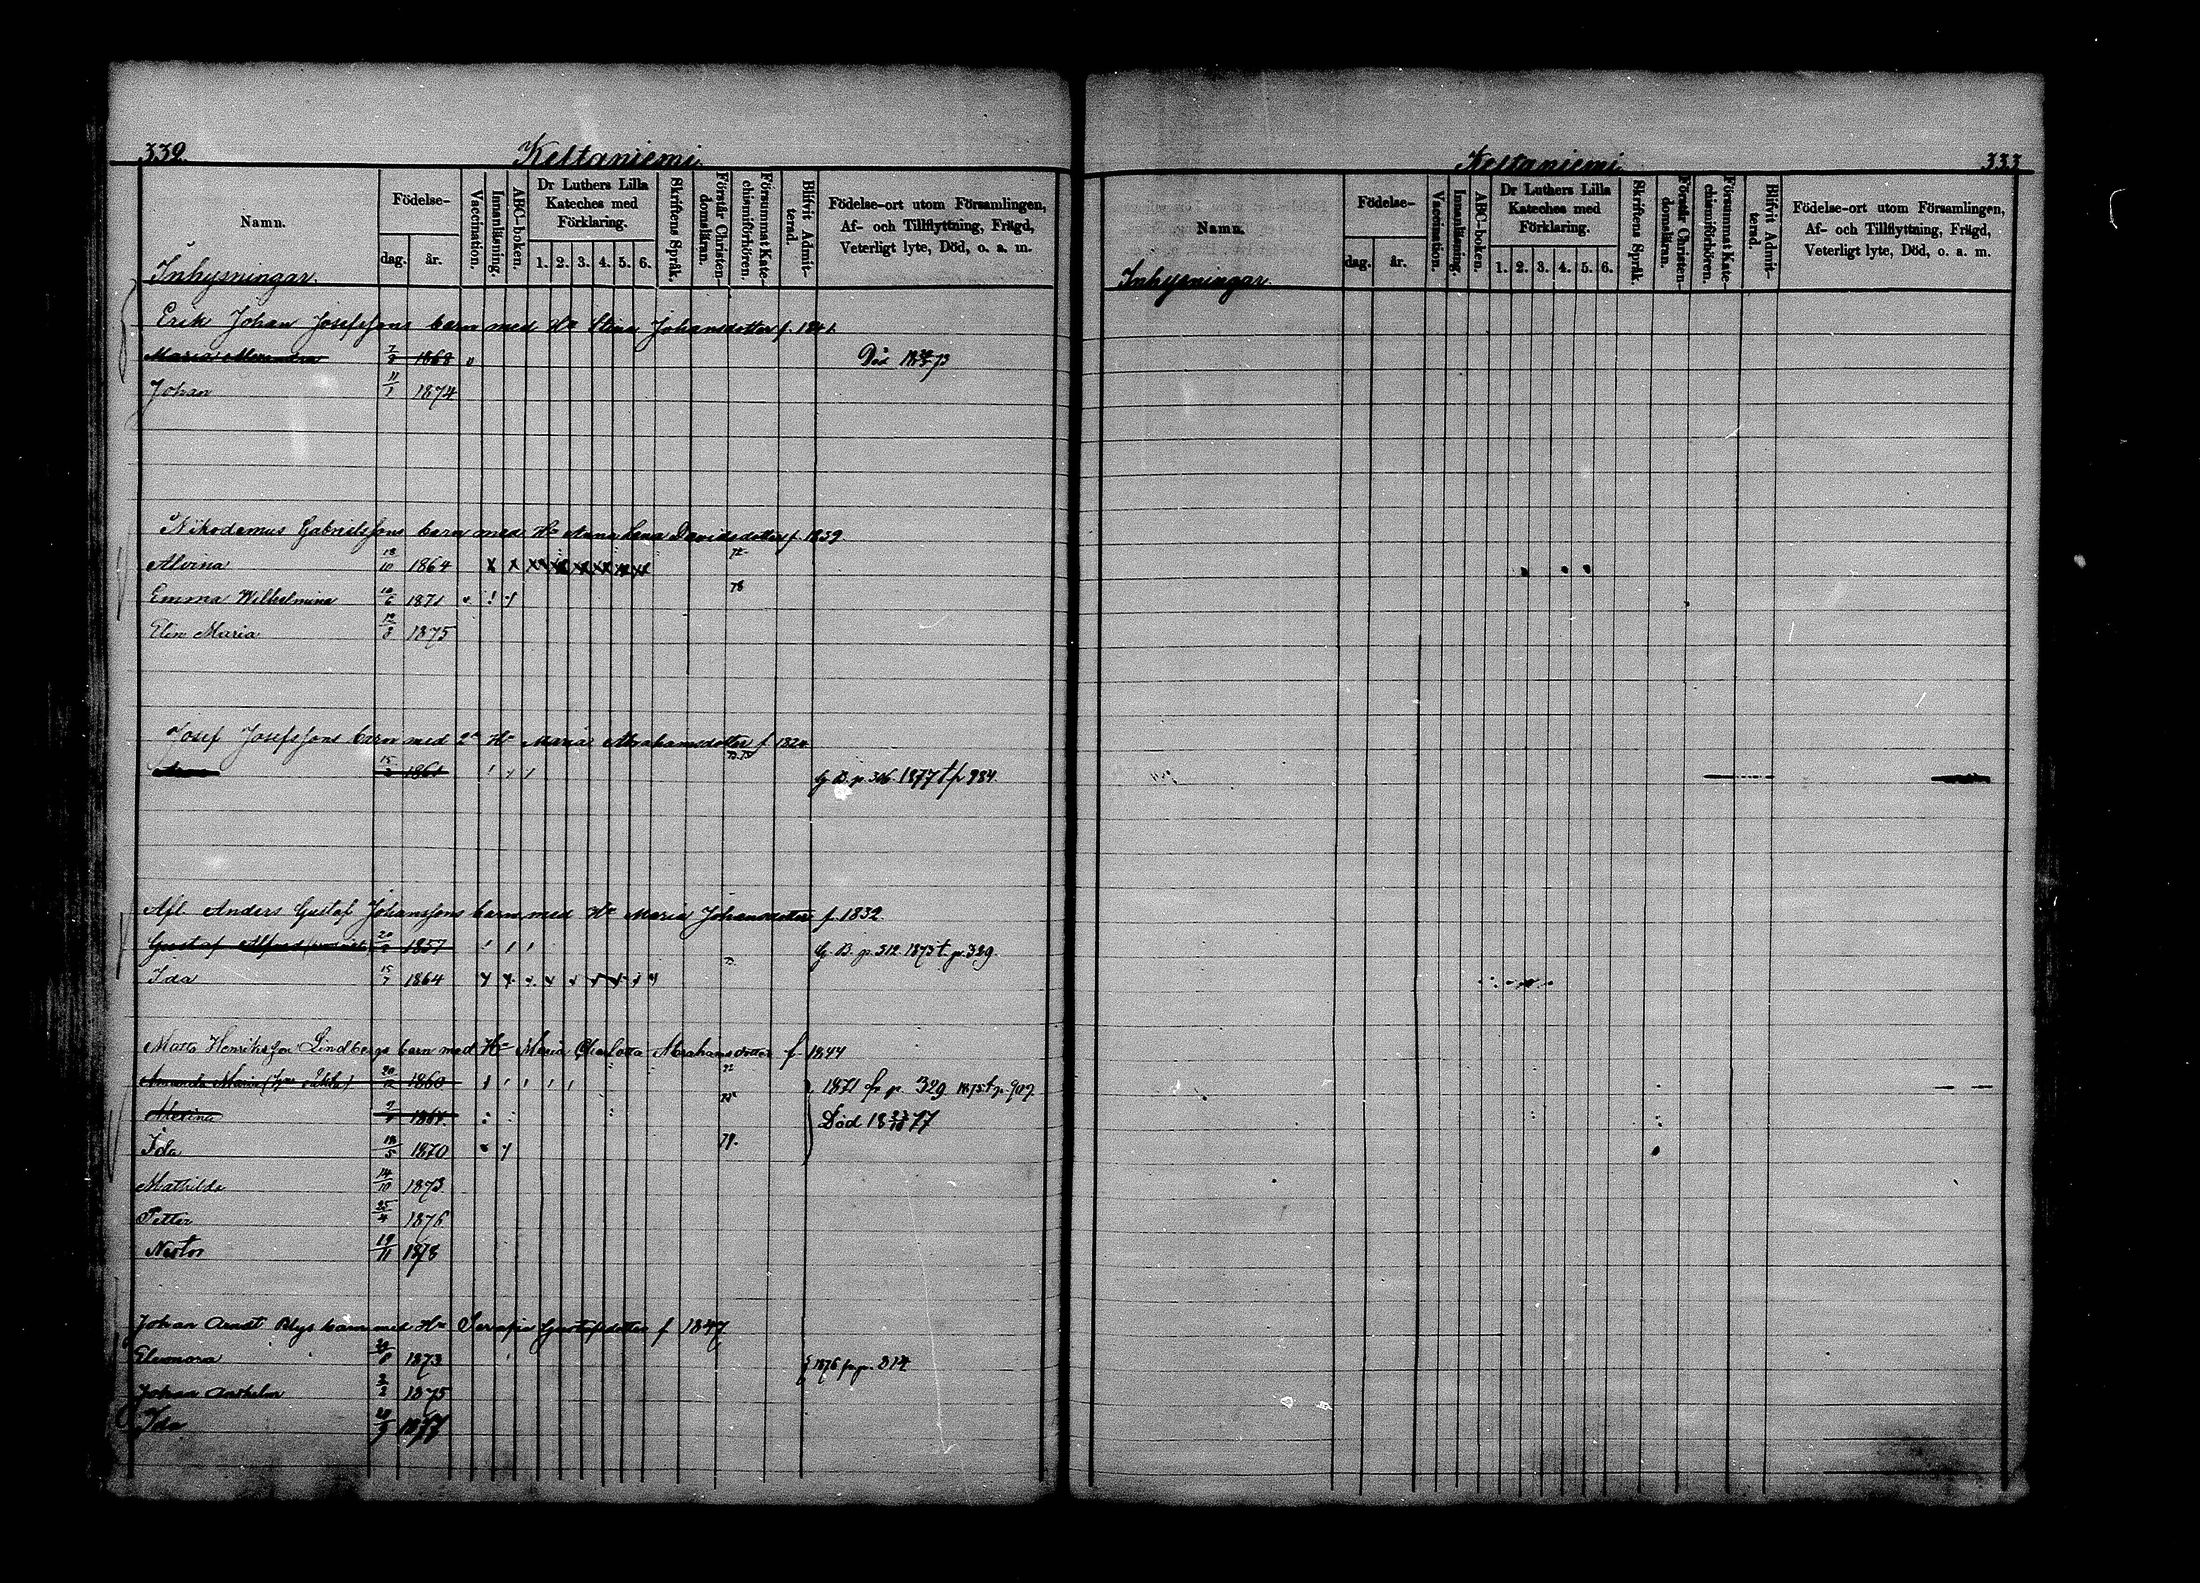 339. Keltaniemi.
Namn. Födelse- dag. år. Vaccination. Innanläsning. ABC-boken. Dr Luthers Lilla Kateches med Förklaring. 1. 2. 3. 4. 5. 6. Skriftens Språk. Förstår Christendomsläran. Försummat Katechismiförhören. Blifvit Admitterad. Födelse-ort utom Församlingen, Af- och Tillflyttning, Frägd, Veterligt lyte, Död, o. a. m.
Inhysningar.
Erik Johan Josefssons barn med Hu Stina Johansdotter f. 1841.
Maria 7/9 1868 Död
Johan 11/1 1874
Nikodemus Gabrielssons barn med Hu Anna Lena Davidsdotter f. 1839
Alvina 18/10 1864
Emma Wilhelmina 10/6 1871 78
Elin Maria 19/8 1875
Josef Josefssons barn med 2a Hu Maria Abrahamsdotter f. 1820
15 1861 G. B. p. 316 1877 t. p. 984.
Afl. Anders Gustaf Johanssons barn med Hu Maria Johansdotter f. 1832
Gustaf Alfred 20/2 1857 G. B. p. 312 1873 t. p. 329.
Ida 15/7 1864
Matts Henriksson Lindbergs barn med Hu Maria Charlotta Abrahamsdotter f. 1844
Amanda Maria 20 1860 1871 fr p. 329 1875 t. p. 907.
Alexina 9 Död 77
Ida 18/5 1870 79.
Mathilda 14/10 1873
Petter 25/4 1876
Nestor 19/11 1878
Johan Arndt Blys barn med Hu Serafia Gustafsdotter f. 1847
Eleonora 1873 1876 fr p. 314
Johan Anshelm 2/2 1875
Ida 1877
Keltaniemi. 333
Namn. Födelse- dag. år. Vaccination. Innanläsning. ABC-boken. Dr Luthers Lilla Kateches med Förklaring. 1. 2. 3. 4. 5. 6. Skriftens Språk. Förstår Christendomsläran. Försummat Katechismiförhören. Blifvit Admitterad. Födelse-ort utom Församlingen, Af- och Tillflyttning, Frägd, Veterligt lyte, Död, o. a. m.
Inhysningar.